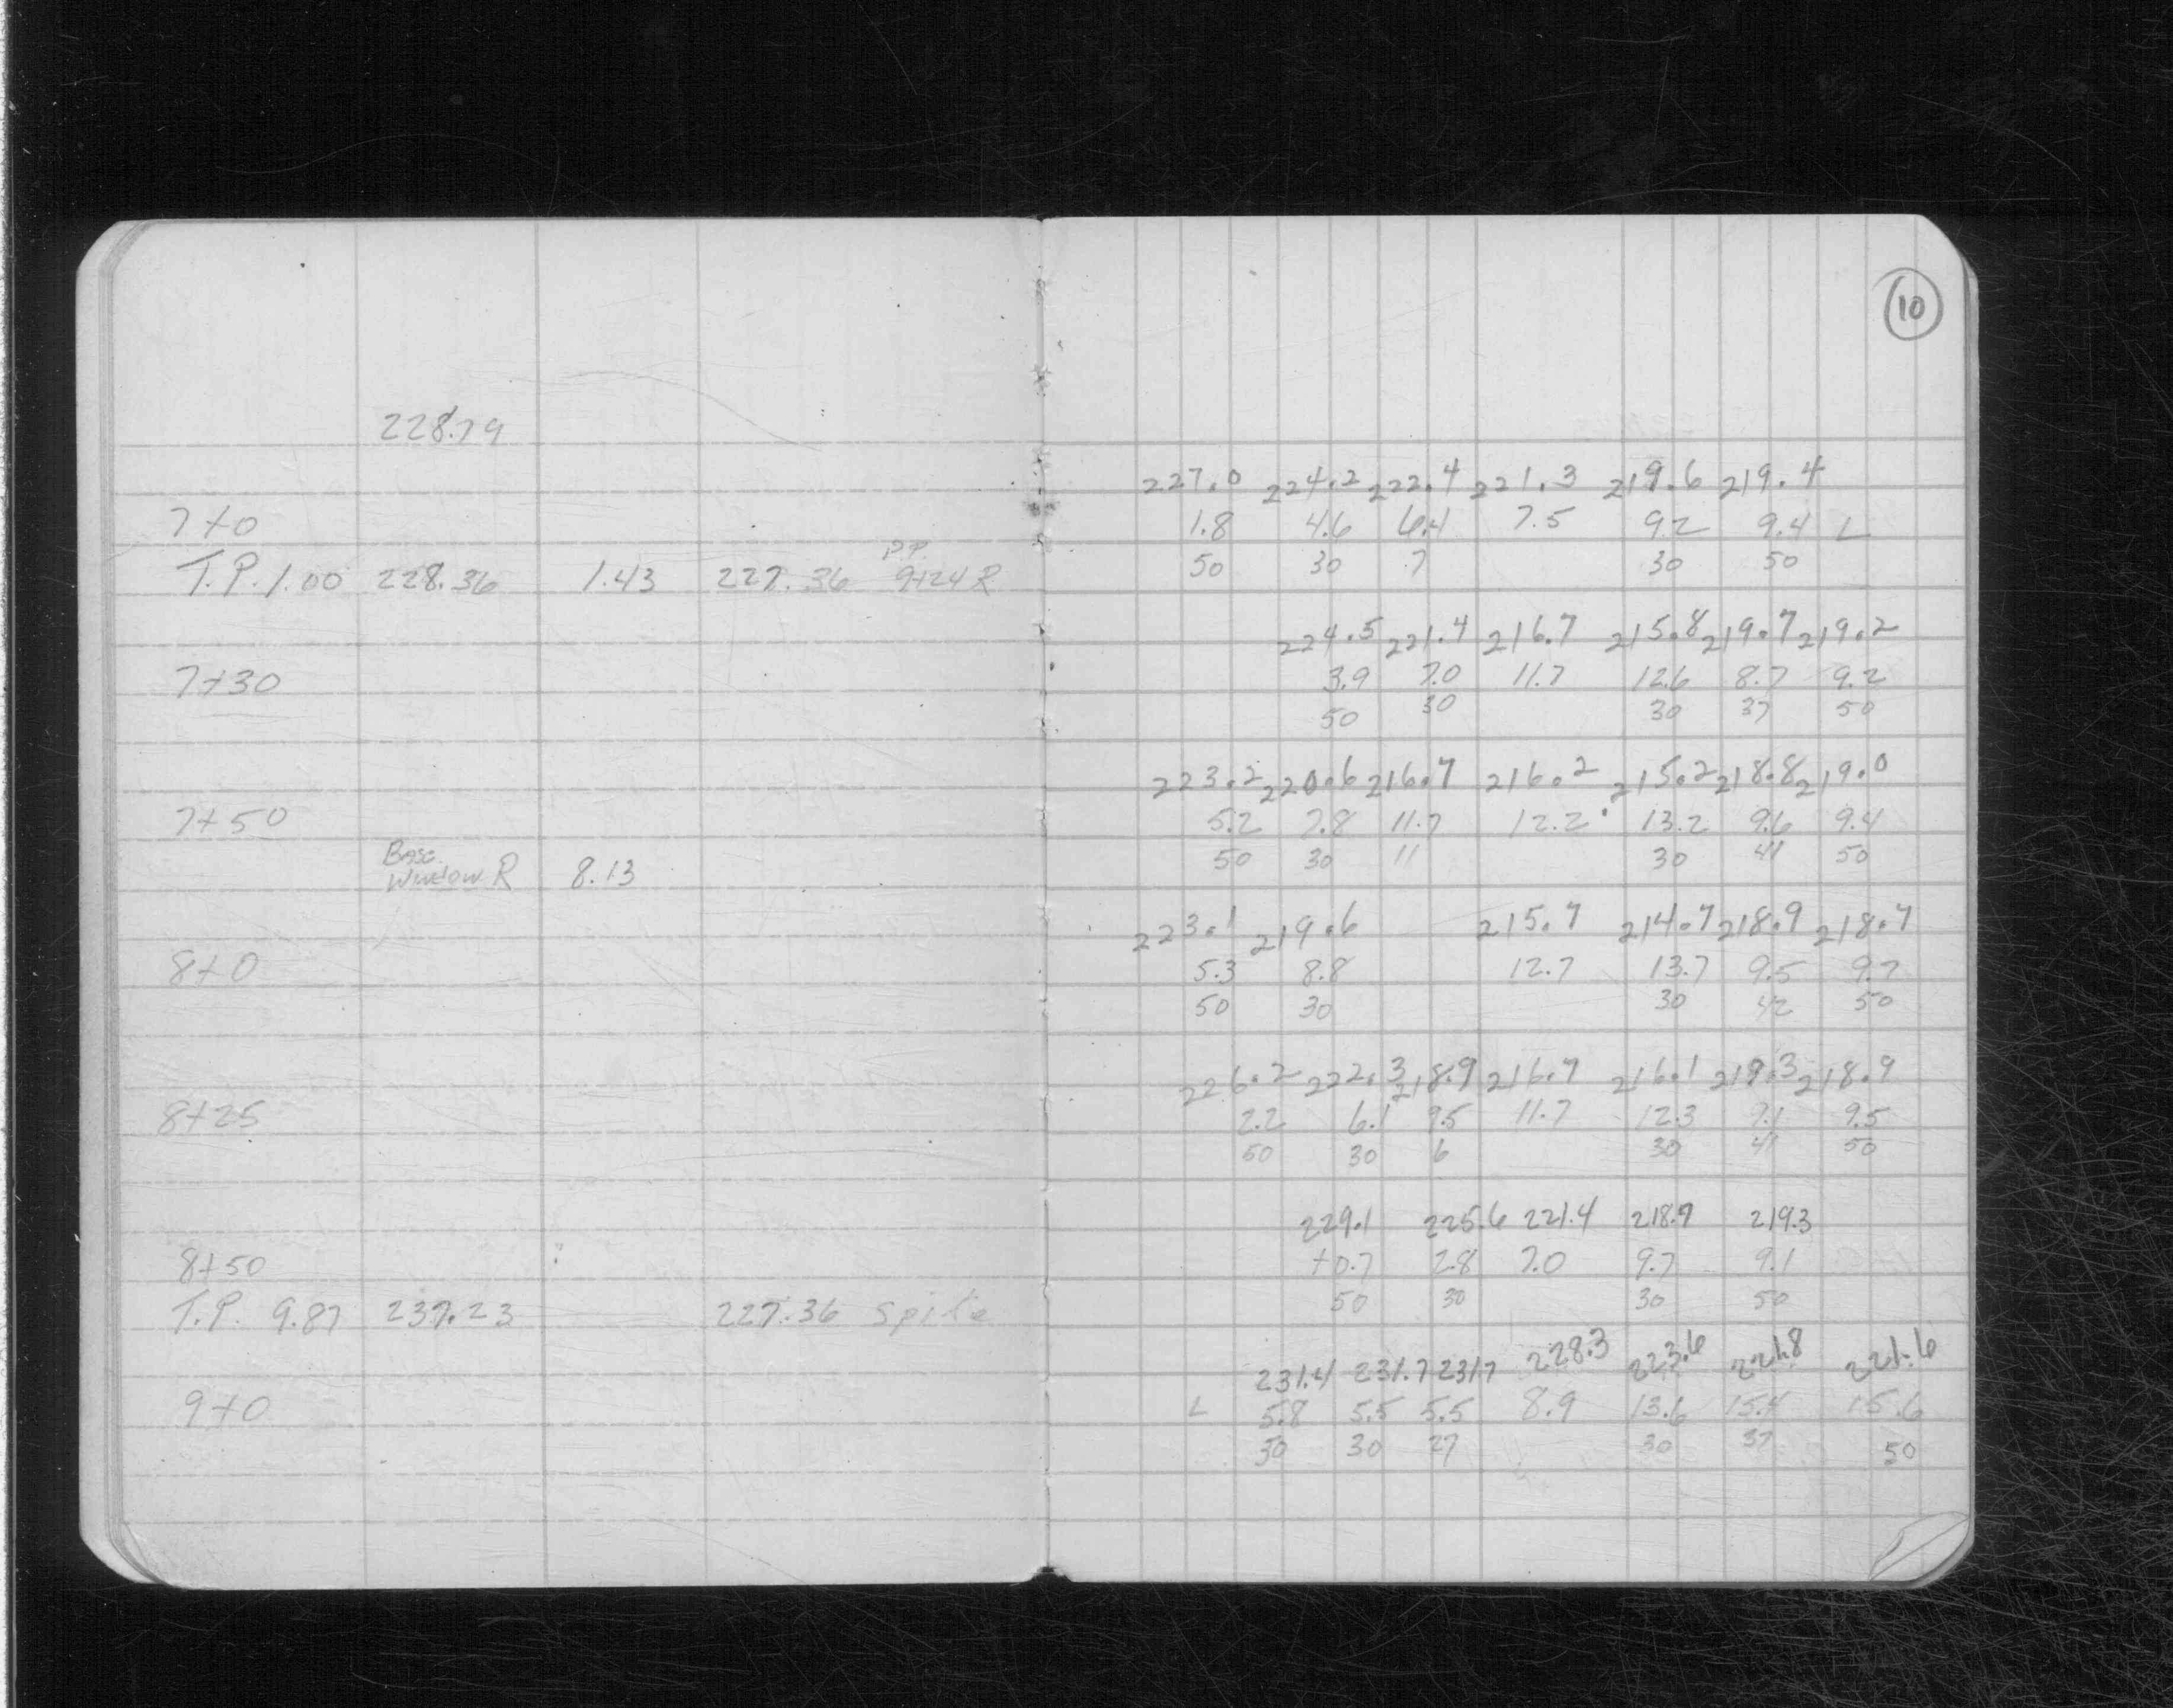 10
228.79
227.0 224.2 222.4 221.3 219.6 219.4
7+0 1.8 4.6 6.4 7.5 9.2 9.4 L
50 30 7 30 50
P.P.
T.P. 1.00 228.36 1.43 227.36 9+24 R
224.5 221.4 216.7 215.8 219.7 219.2
7+30 3.9 7.0 11.7 12.6 8.7 9.2
50 30 30 37 50
223.2 220.6 216.7 216.2 215.2 218.8 219.0
7+50 5.2 7.8 11.7 12.2 13.2 9.6 9.4
50 30 11 30 41 50
Base
Window R 8.13
223.1 219.6 215.7 214.7 218.9 218.7
8+0 5.3 8.8 12.7 13.7 9.5 9.7
50 30 30 42 50
226.2 222.3 218.9 216.7 216.1 219.3 218.9
8+25 2.2 6.1 9.5 11.7 12.3 9.1 9.5
50 30 6 30 41 50
229.1 225.6 221.4 218.7 219.3
8+50 +0.7 2.8 7.0 9.7 9.1
50 30 30 50
T.P. 9.87 237.23 227.36 Spike
231.4 231.7 231.7 228.3 223.6 221.8 221.6
9+0 L 5.8 5.5 5.5 8.9 13.6 15.4 15.6
50 30 27 30 37 50